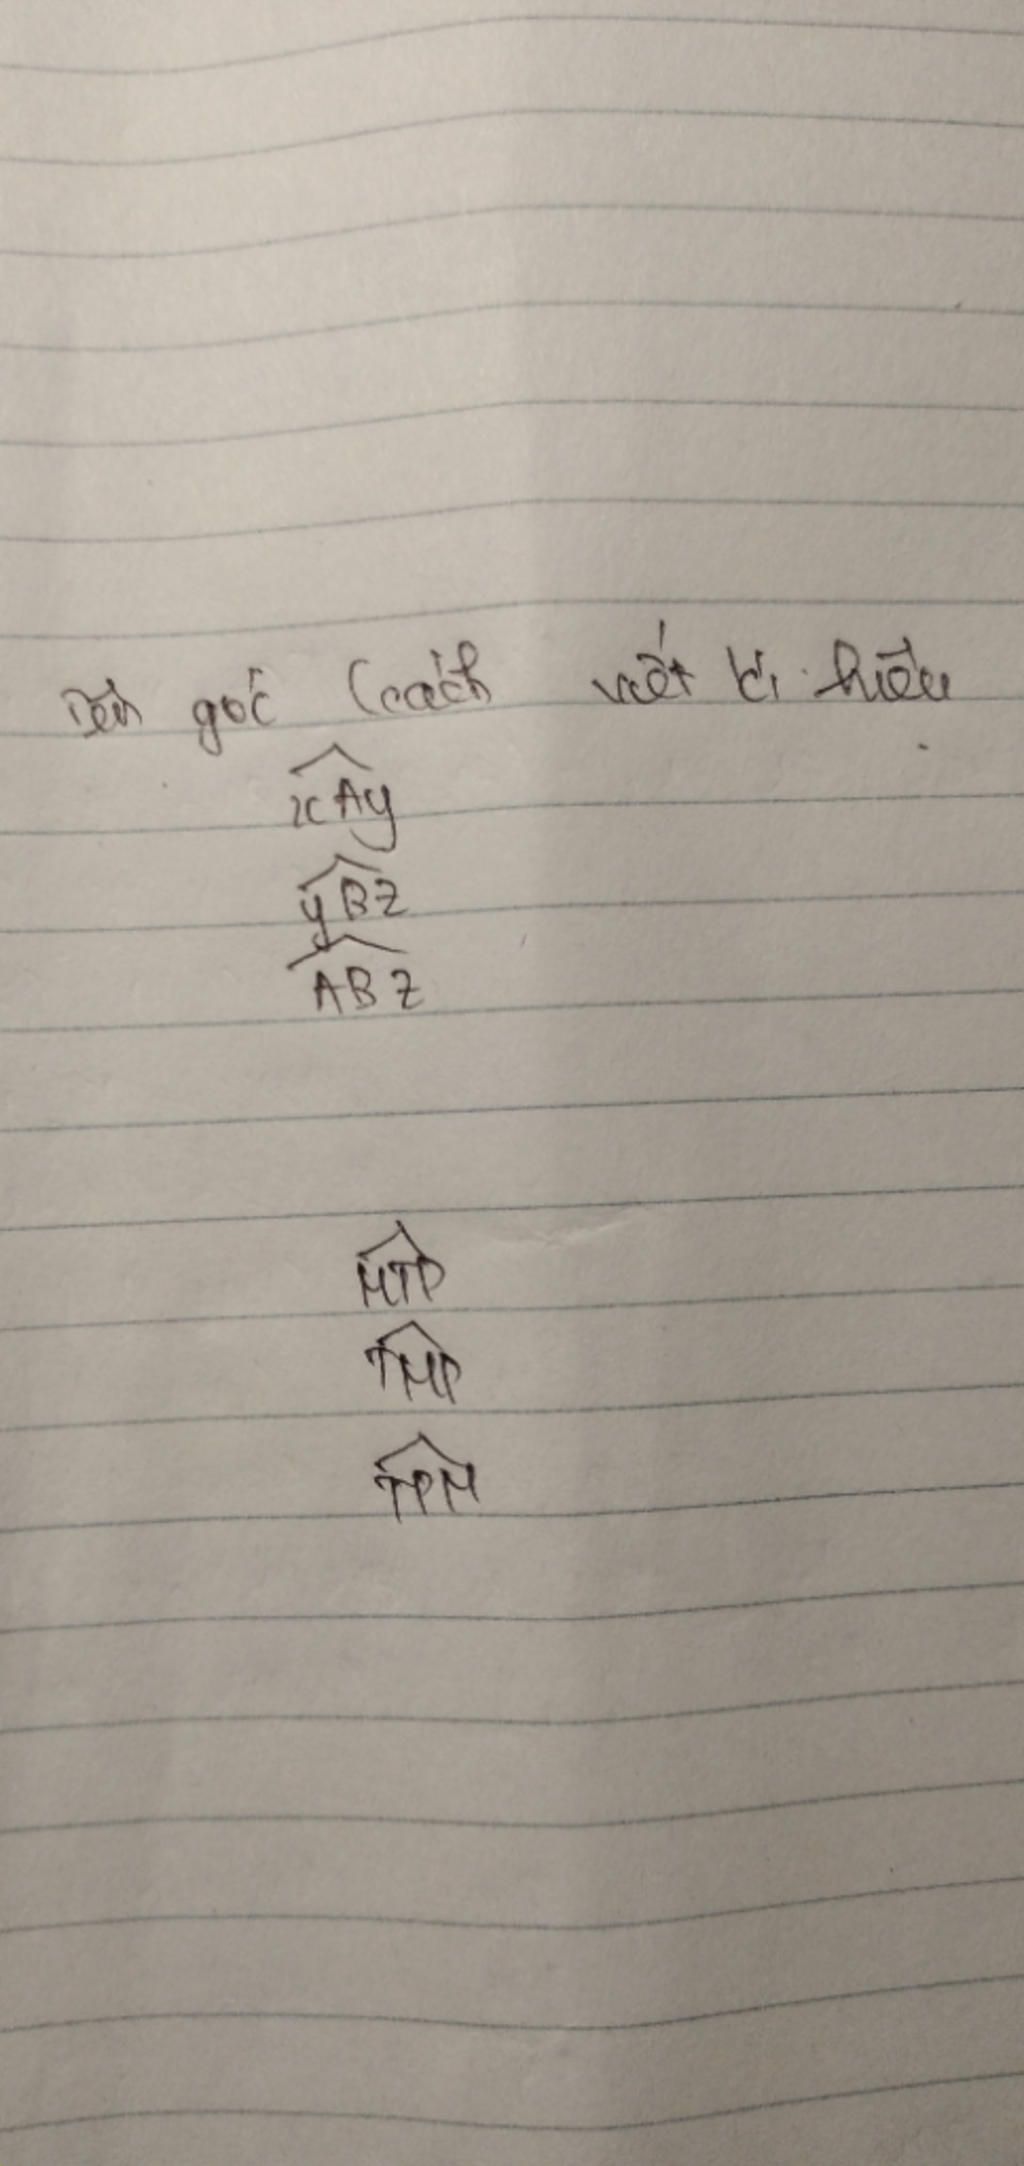 Tên góc (cách viết kí hiệu
xAy
yBz
ABz
MTP
TMP
TPM